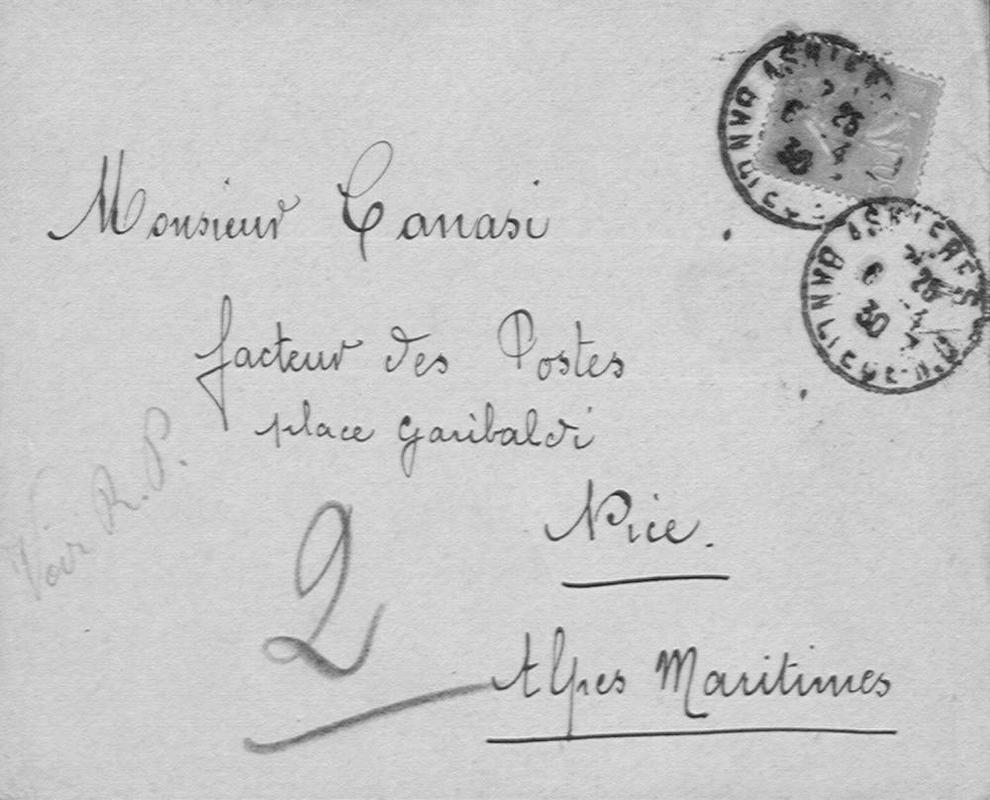 ASNIERES
6 25
30
ASNIERES
6 25
30
Monsieur Canasi
facteur des Postes
place Garibaldi
Voir R. P.
Nice.
2
Alpes Maritimes